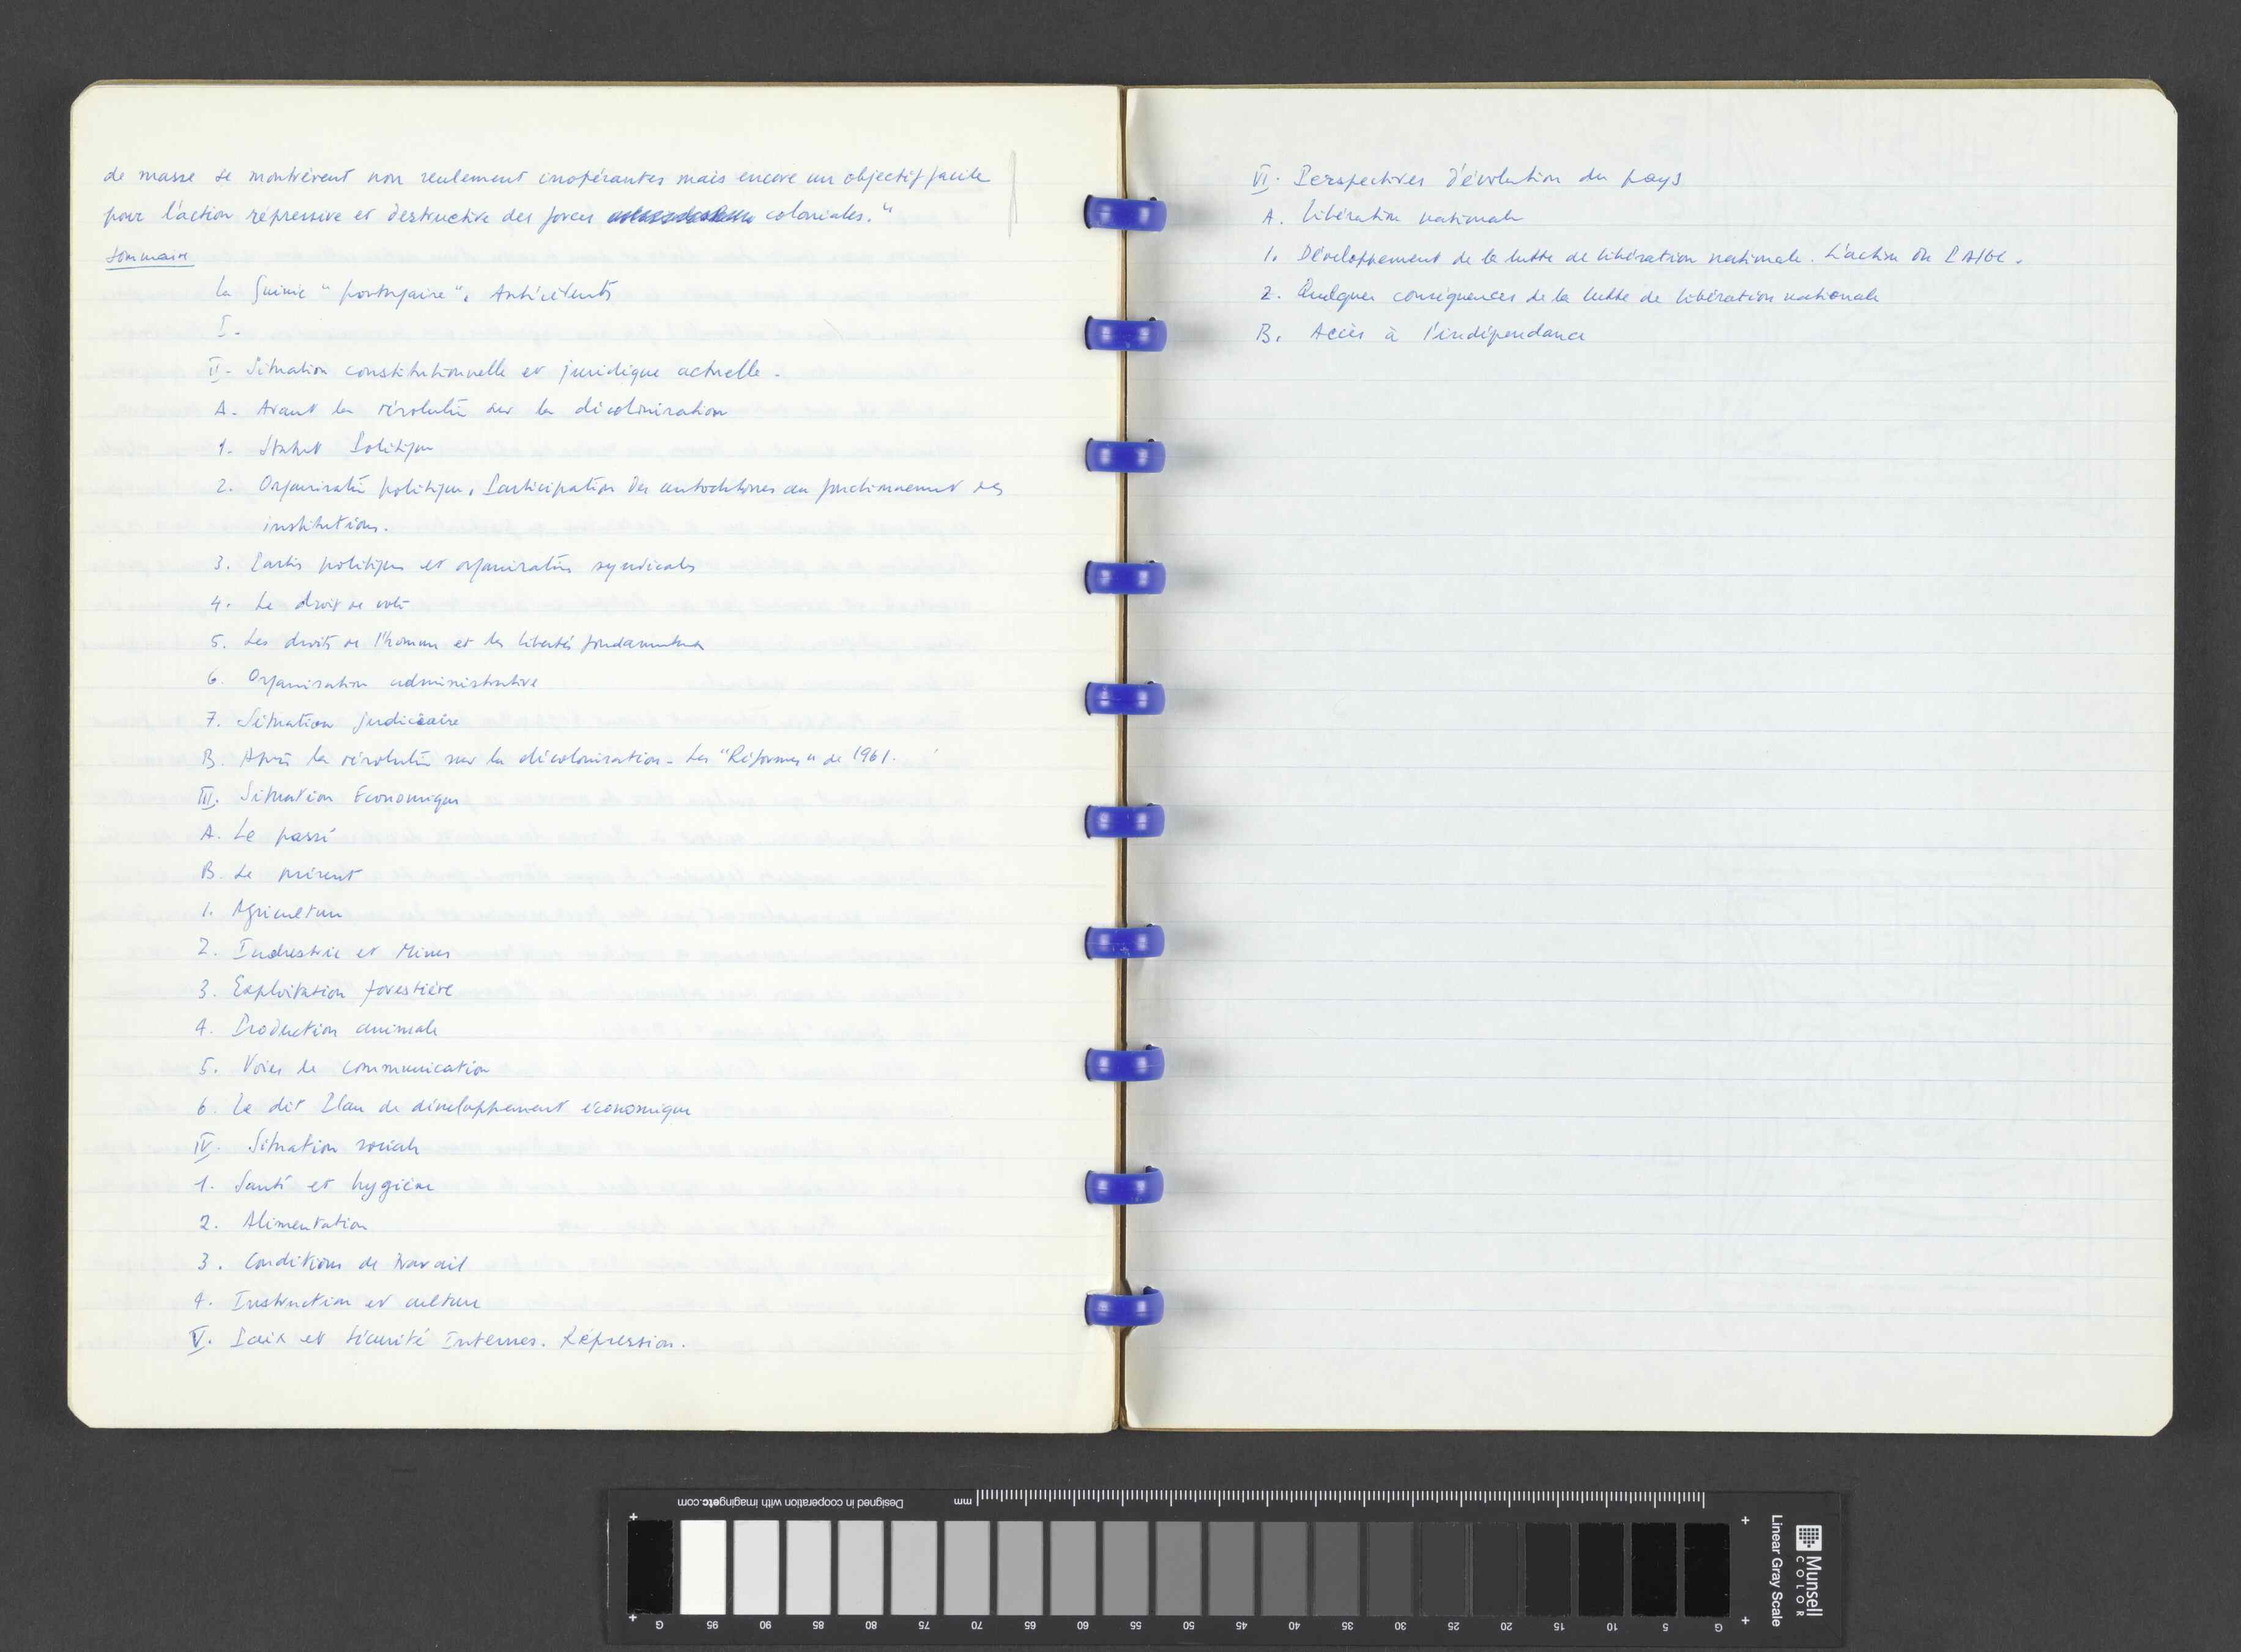 de masse se montrèrent non seulement inopérantes mais encore un objectif facile
pour l'action répressive et destructive des forces coloniales."
Sommaire
La Guinée "portugaise". Antécédents
I-
II- Situation constitutionnelle et juridique actuelle.
A. Avant la résolution sur la décolonisation
1- Statut Politique
2. Organisation politique. Participation des autochtones au fonctionnement des
institutions.
3. Partis politiques et organisations syndicales
4. Le droit de vote
5. Les droits de l'homme et les libertés fondamentales
6. Organisation administrative
7. Situation judiciaire
B. Après la résolution sur la décolonisation - Les "Réformes" de 1961.
III. Situation Economique
A. Le passé
B. Le présent
1. Agriculture
2. Industrie et Mines
3. Exploitation forestière
4. Production animale
5. Voies de communication
6. Le dit Plan de développement économique
IV. Situation sociale
1. Santé et hygiène
2. Alimentation
3. Conditions de travail
4. Instruction et culture
V. Paix et Sécurité Internes. Répression.
VI. Perspectives d'évolution du pays
A. Libération nationale
1. Développement de la lutte de libération nationale. L'action du PAIGC.
2. Quelques conséquences de la lutte de libération nationale
B. Accès à l'indépendance
Designed in cooperation with imagingetc.com
mm
Munsell
COLOR
Linear Gray Scale
G 95 90 85 80 75 70 65 60 55 50 45 40 35 30 25 20 15 10 5 G